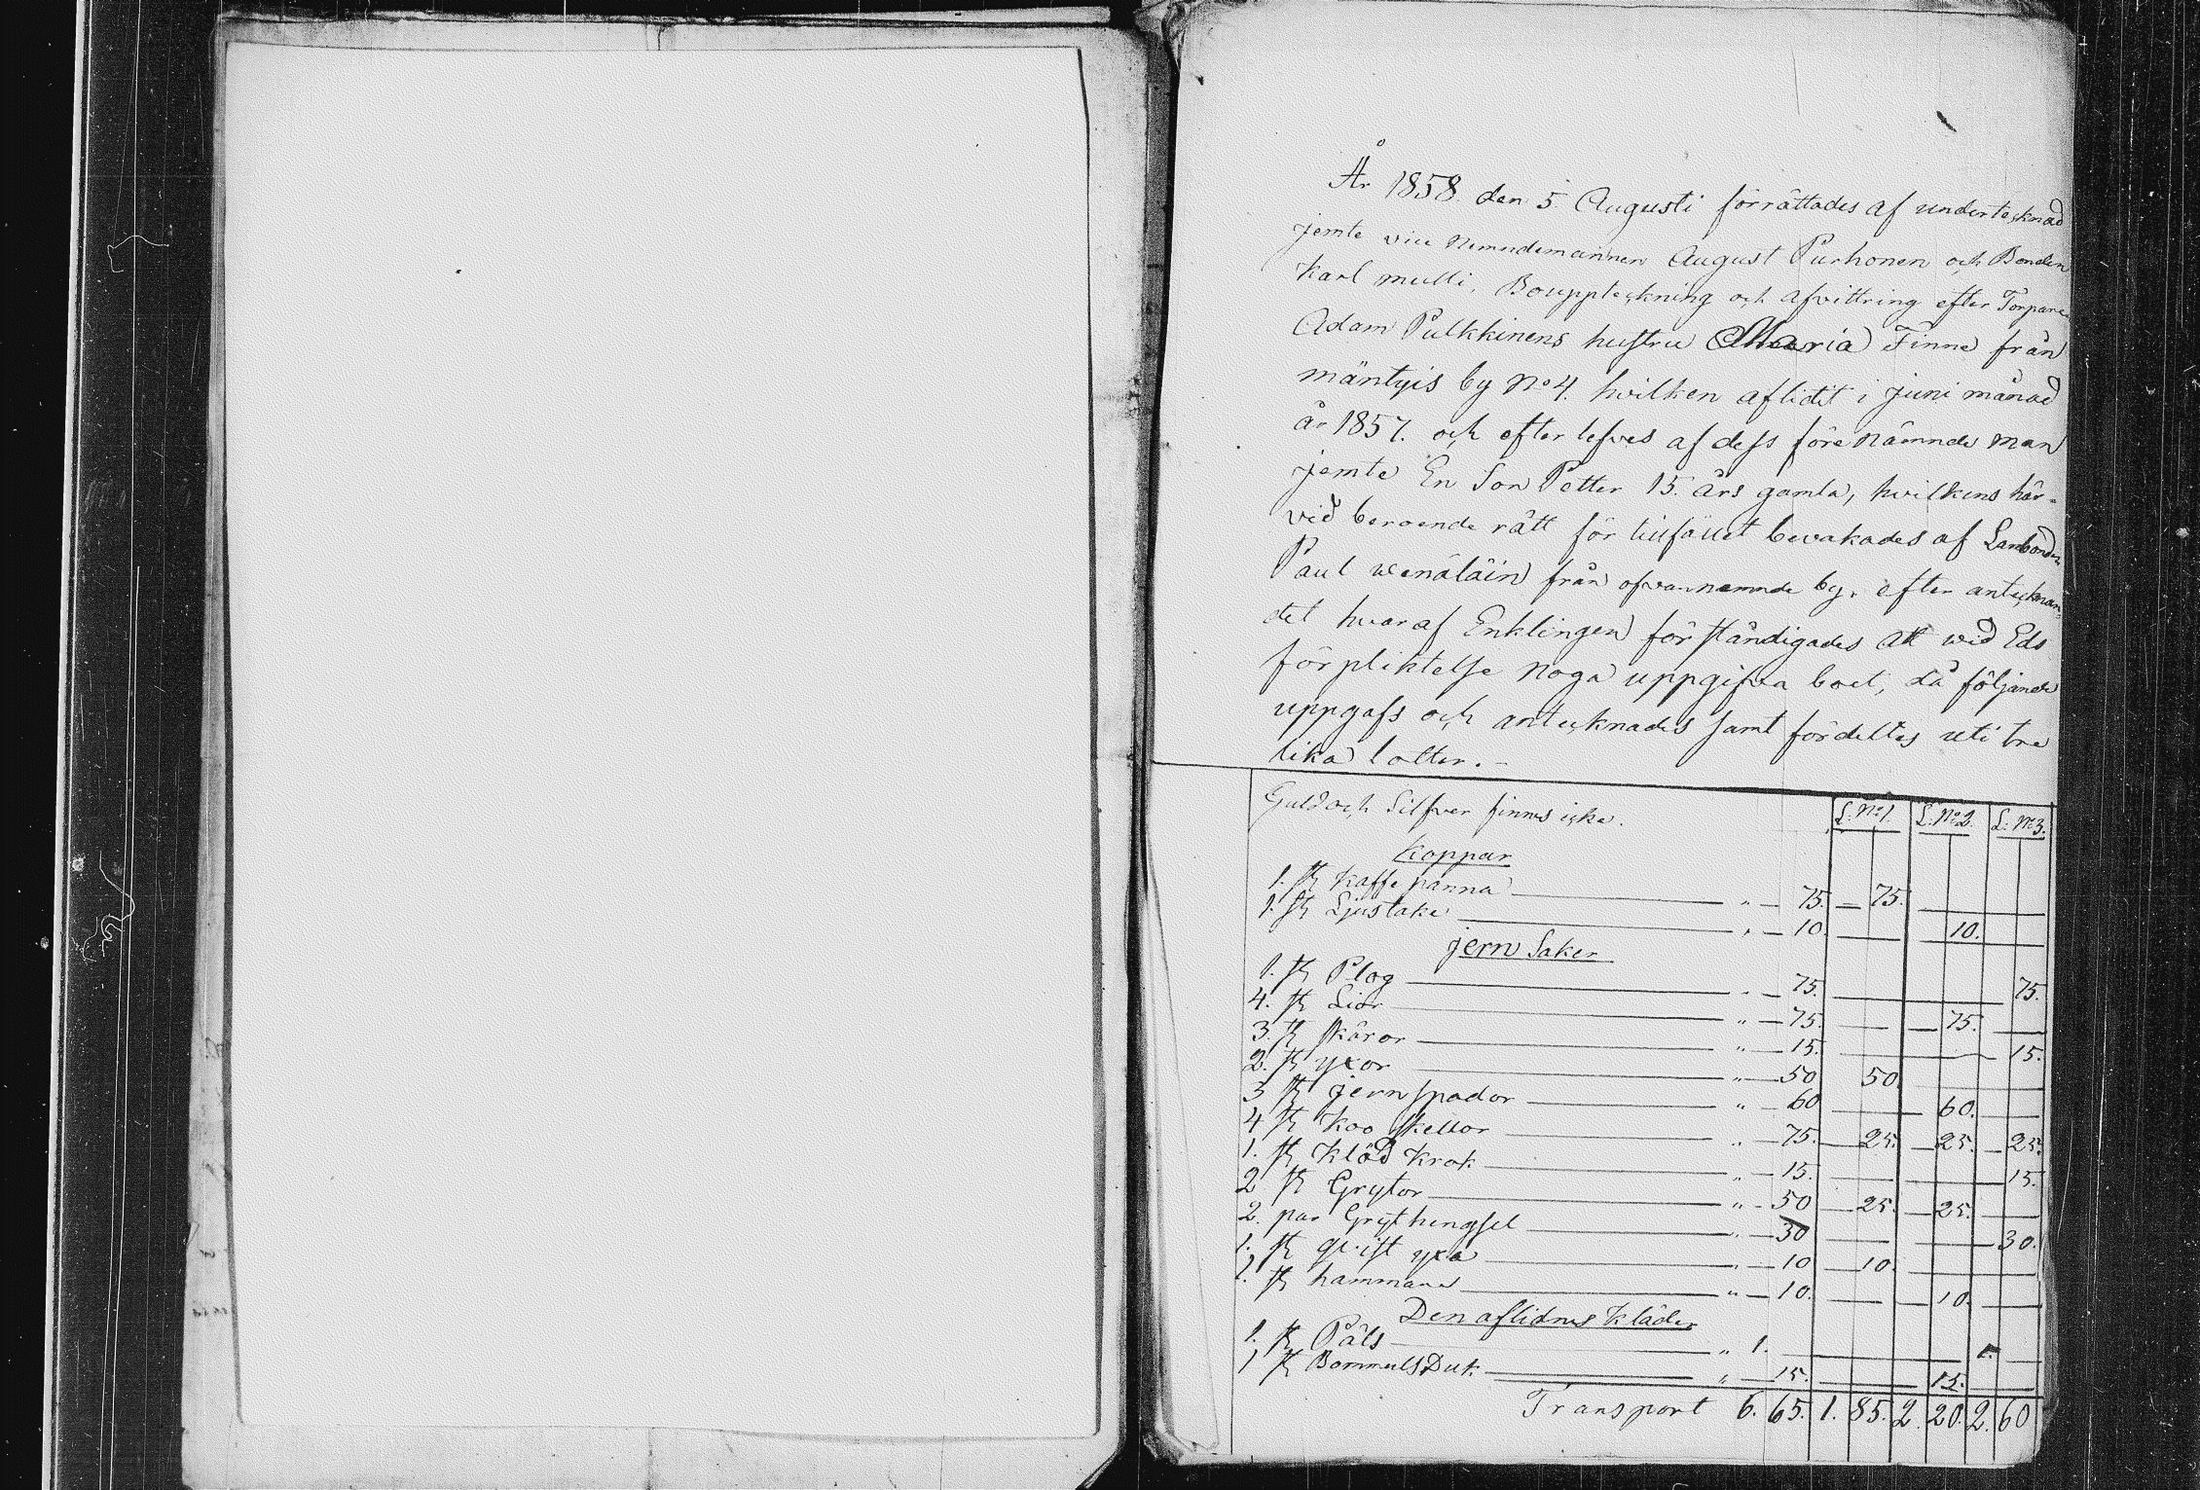 År 1858. den 5 Augusti förrättades af undertecknad
jemte vice nemndemannen August Purhonen och Bonden
Karl multi, Bouppteckning och afvittring efter Torpare
Adam Pulkkinens hustru Maria Finne från
mäntyis by No 4. hvilken aflidit i juni månad
år 1857. och efterlefves af dess förenämnde man
jemte En Son Petter 15. års gamla, hvilkens här-
vid beroende rätt för tillfället bevakades af Lanbonden
Paul wenäläin från ofvannemnde by. efter antecknan-
det hvaraf Enklingen förständigades att wid Eds
förpliktelse noga uppgifva boet, då följande
uppgafs och antecknades samt fördeltes uti tre
lika lotter. -
Guld och Silfver finnes icke. L: No 1. L: No 2. L: No 3.
Koppar
1. st Kaffepanna " - 75. - 75.
1. st Ljustake " - 10. 10.
jern Saker
1. st Plog " - 75. 75.
4. st Liar " - 75. - 75.
3. st skäror " - 15. 15.
2. st yxor " - 50 50
3 st jernspador " - 60 60.
4 st Koo skellor " - 75. - 25. - 25. - 25.
1. st Kläd Krok " - 15. 15.
2 st Grytor " - 50 - 25. - 25.
2. par Grythengsel " - 30 30.
1. st qvist yxa " - 10 - 10.
1. st hammare " - 10. - 10.
Den aflidnes Kläder
1. st Päls " 1. 1.
1 st BommullsDuk " - 15. 15.
Transport 6. 65. 1. 85. 2. 20. 2. 60